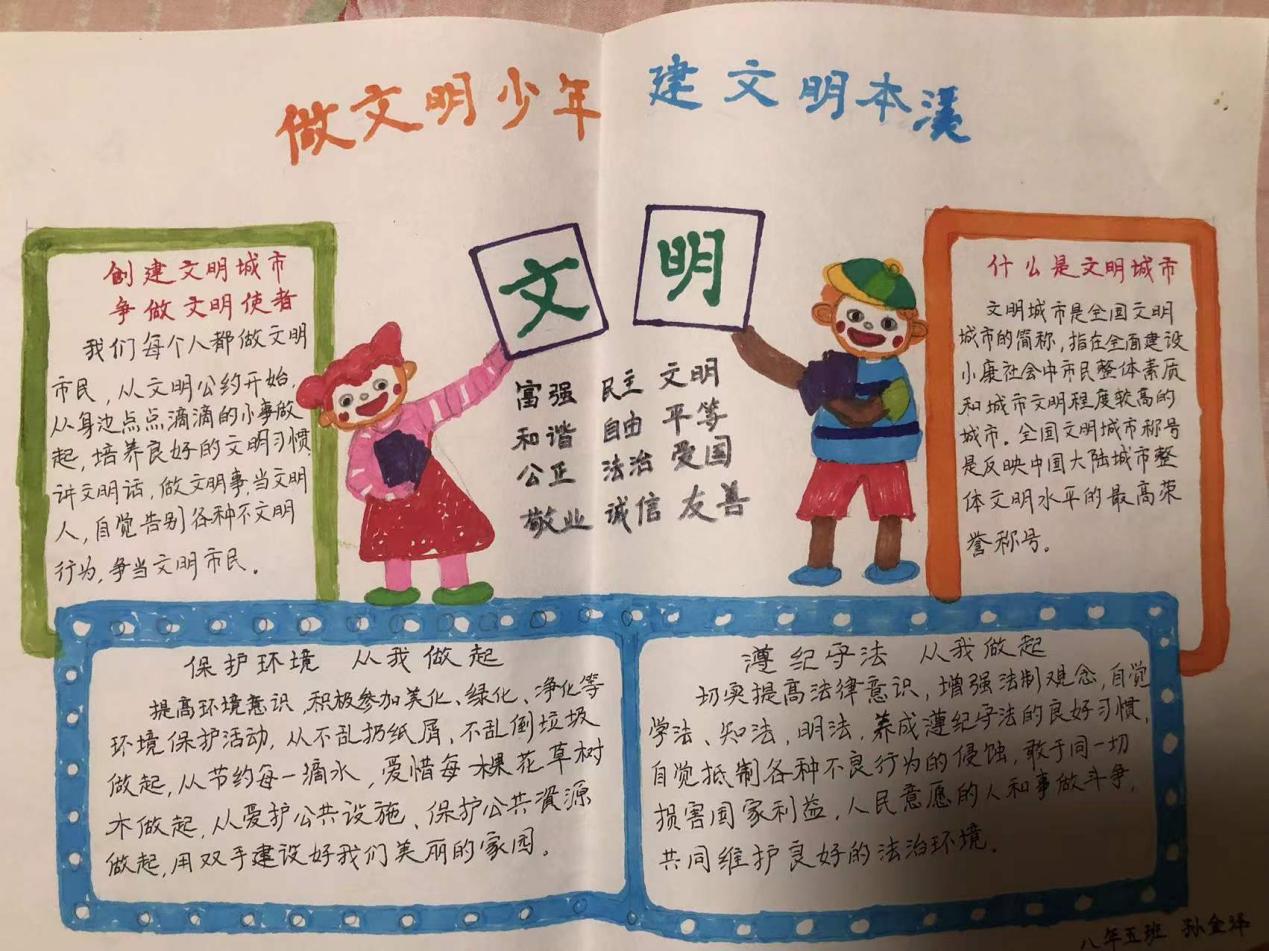 做文明少年 建文明本溪
文 明
创建文明城市
争做文明使者
我们每个人都做文明
市民，从文明公约开始，
从身边点点滴滴的小事做
起，培养良好的文明习惯
讲文明话，做文明事，当文明
人，自觉告别各种不文明
行为，争当文明市民。
富强 民主 文明
和谐 自由 平等
公正 法治 爱国
敬业 诚信 友善
什么是文明城市
文明城市是全国文明
城市的简称，指在全面建设
小康社会中市民整体素质
和城市文明程度较高的
城市。全国文明城市称号
是反映中国大陆城市整
体文明水平的最高荣
誉称号。
保护环境 从我做起
提高环境意识，积极参加美化、绿化、净化等
环境保护活动，从不乱扔纸屑、不乱倒垃圾
做起，从节约每一滴水，爱惜每一棵花草树
木做起，从爱护公共设施、保护公共資源
做起，用双手建设好我们美丽的家园。
遵纪守法 从我做起
切实提高法律意识，增强法制观念，自觉
学法、知法，明法，养成遵纪守法的良好习惯，
自觉抵制各种不良行为的侵蚀，敢于同一切
损害国家利益，人民意愿的人和事做斗争，
共同维护良好的法治环境。
八年五班 孙金泽